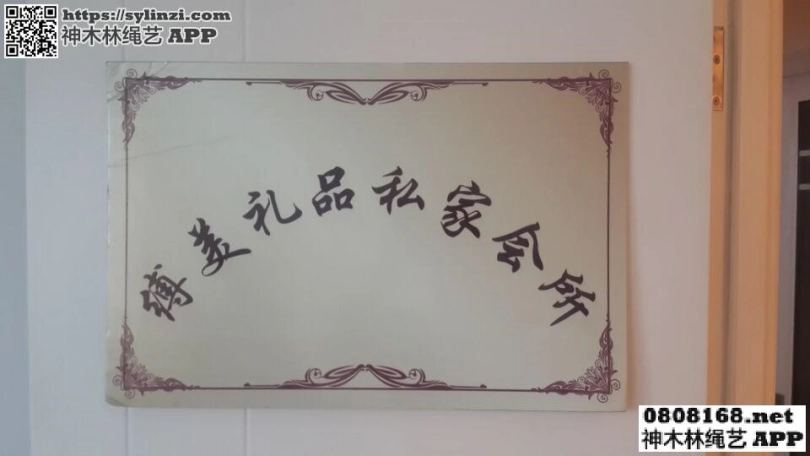 https://sylinzi.com
神木林绳艺 APP
缚美礼品私家会所
0808168.net
神木林绳艺 APP